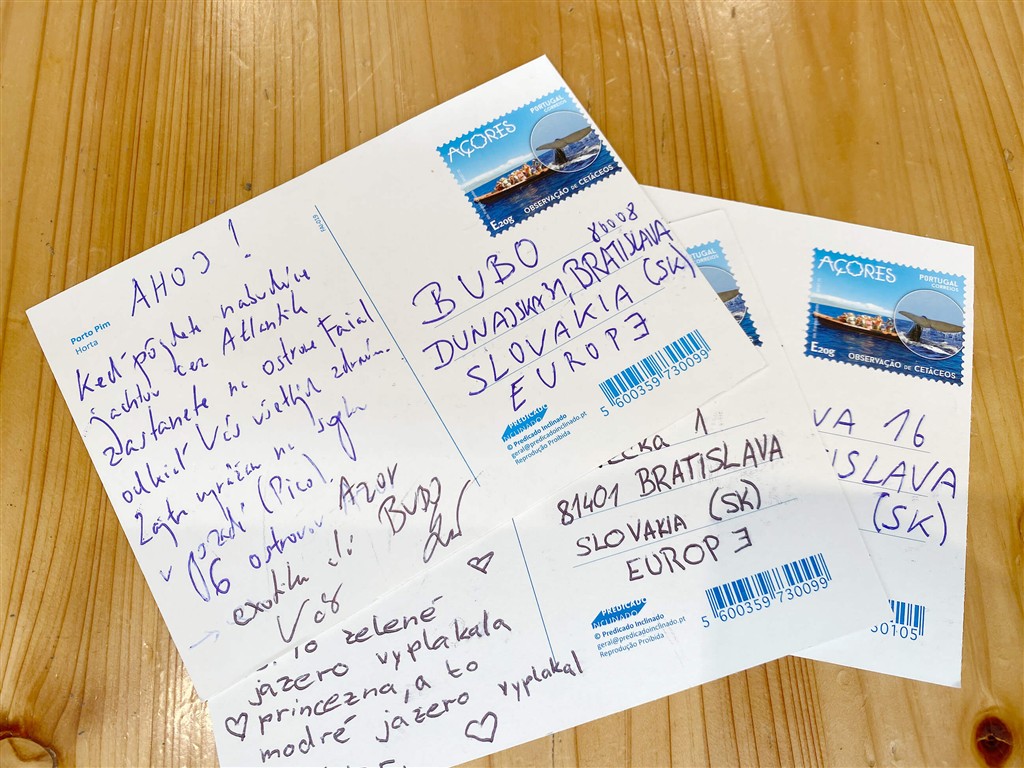 AÇORES
PORTUGAL
CORREIOS
E20g
OBSERVAÇÃO DE CETÁCEOS
Porto Pim
Horta
AHOJ!
Keď pôjdete nabudúce
jachtou cez Atlantik
zastanete na ostrove Faial
odkiaľ Vás všetkých zdravím.
Zajtra vyrážam na
v poradí (Pico).
6 ostrovov Azor
exotika
BUBO
Váš
BUBO
86008
DUNAJSKA 31, BRATISLAVA
SLOVAKIA (SK)
EUROPE
5 600359 730099
PREDICADO
INCLINADO
© Predicado Inclinado
geral@predicadoinclinado.pt
Reprodução Proibida
AÇORES
PORTUGAL
CORREIOS
E20g
OBSERVAÇÃO DE CETÁCEOS
VA 16
ISLAVA
(SK)
50105
1
81401 BRATISLAVA
SLOVAKIA (SK)
EUROPE
5 600359 730099
PREDICADO
INCLINADO
© Predicado Inclinado
geral@predicadoinclinado.pt
Reprodução Proibida
To zelené
jazero vyplakala
princezna, a to
modré jazero vyplakal